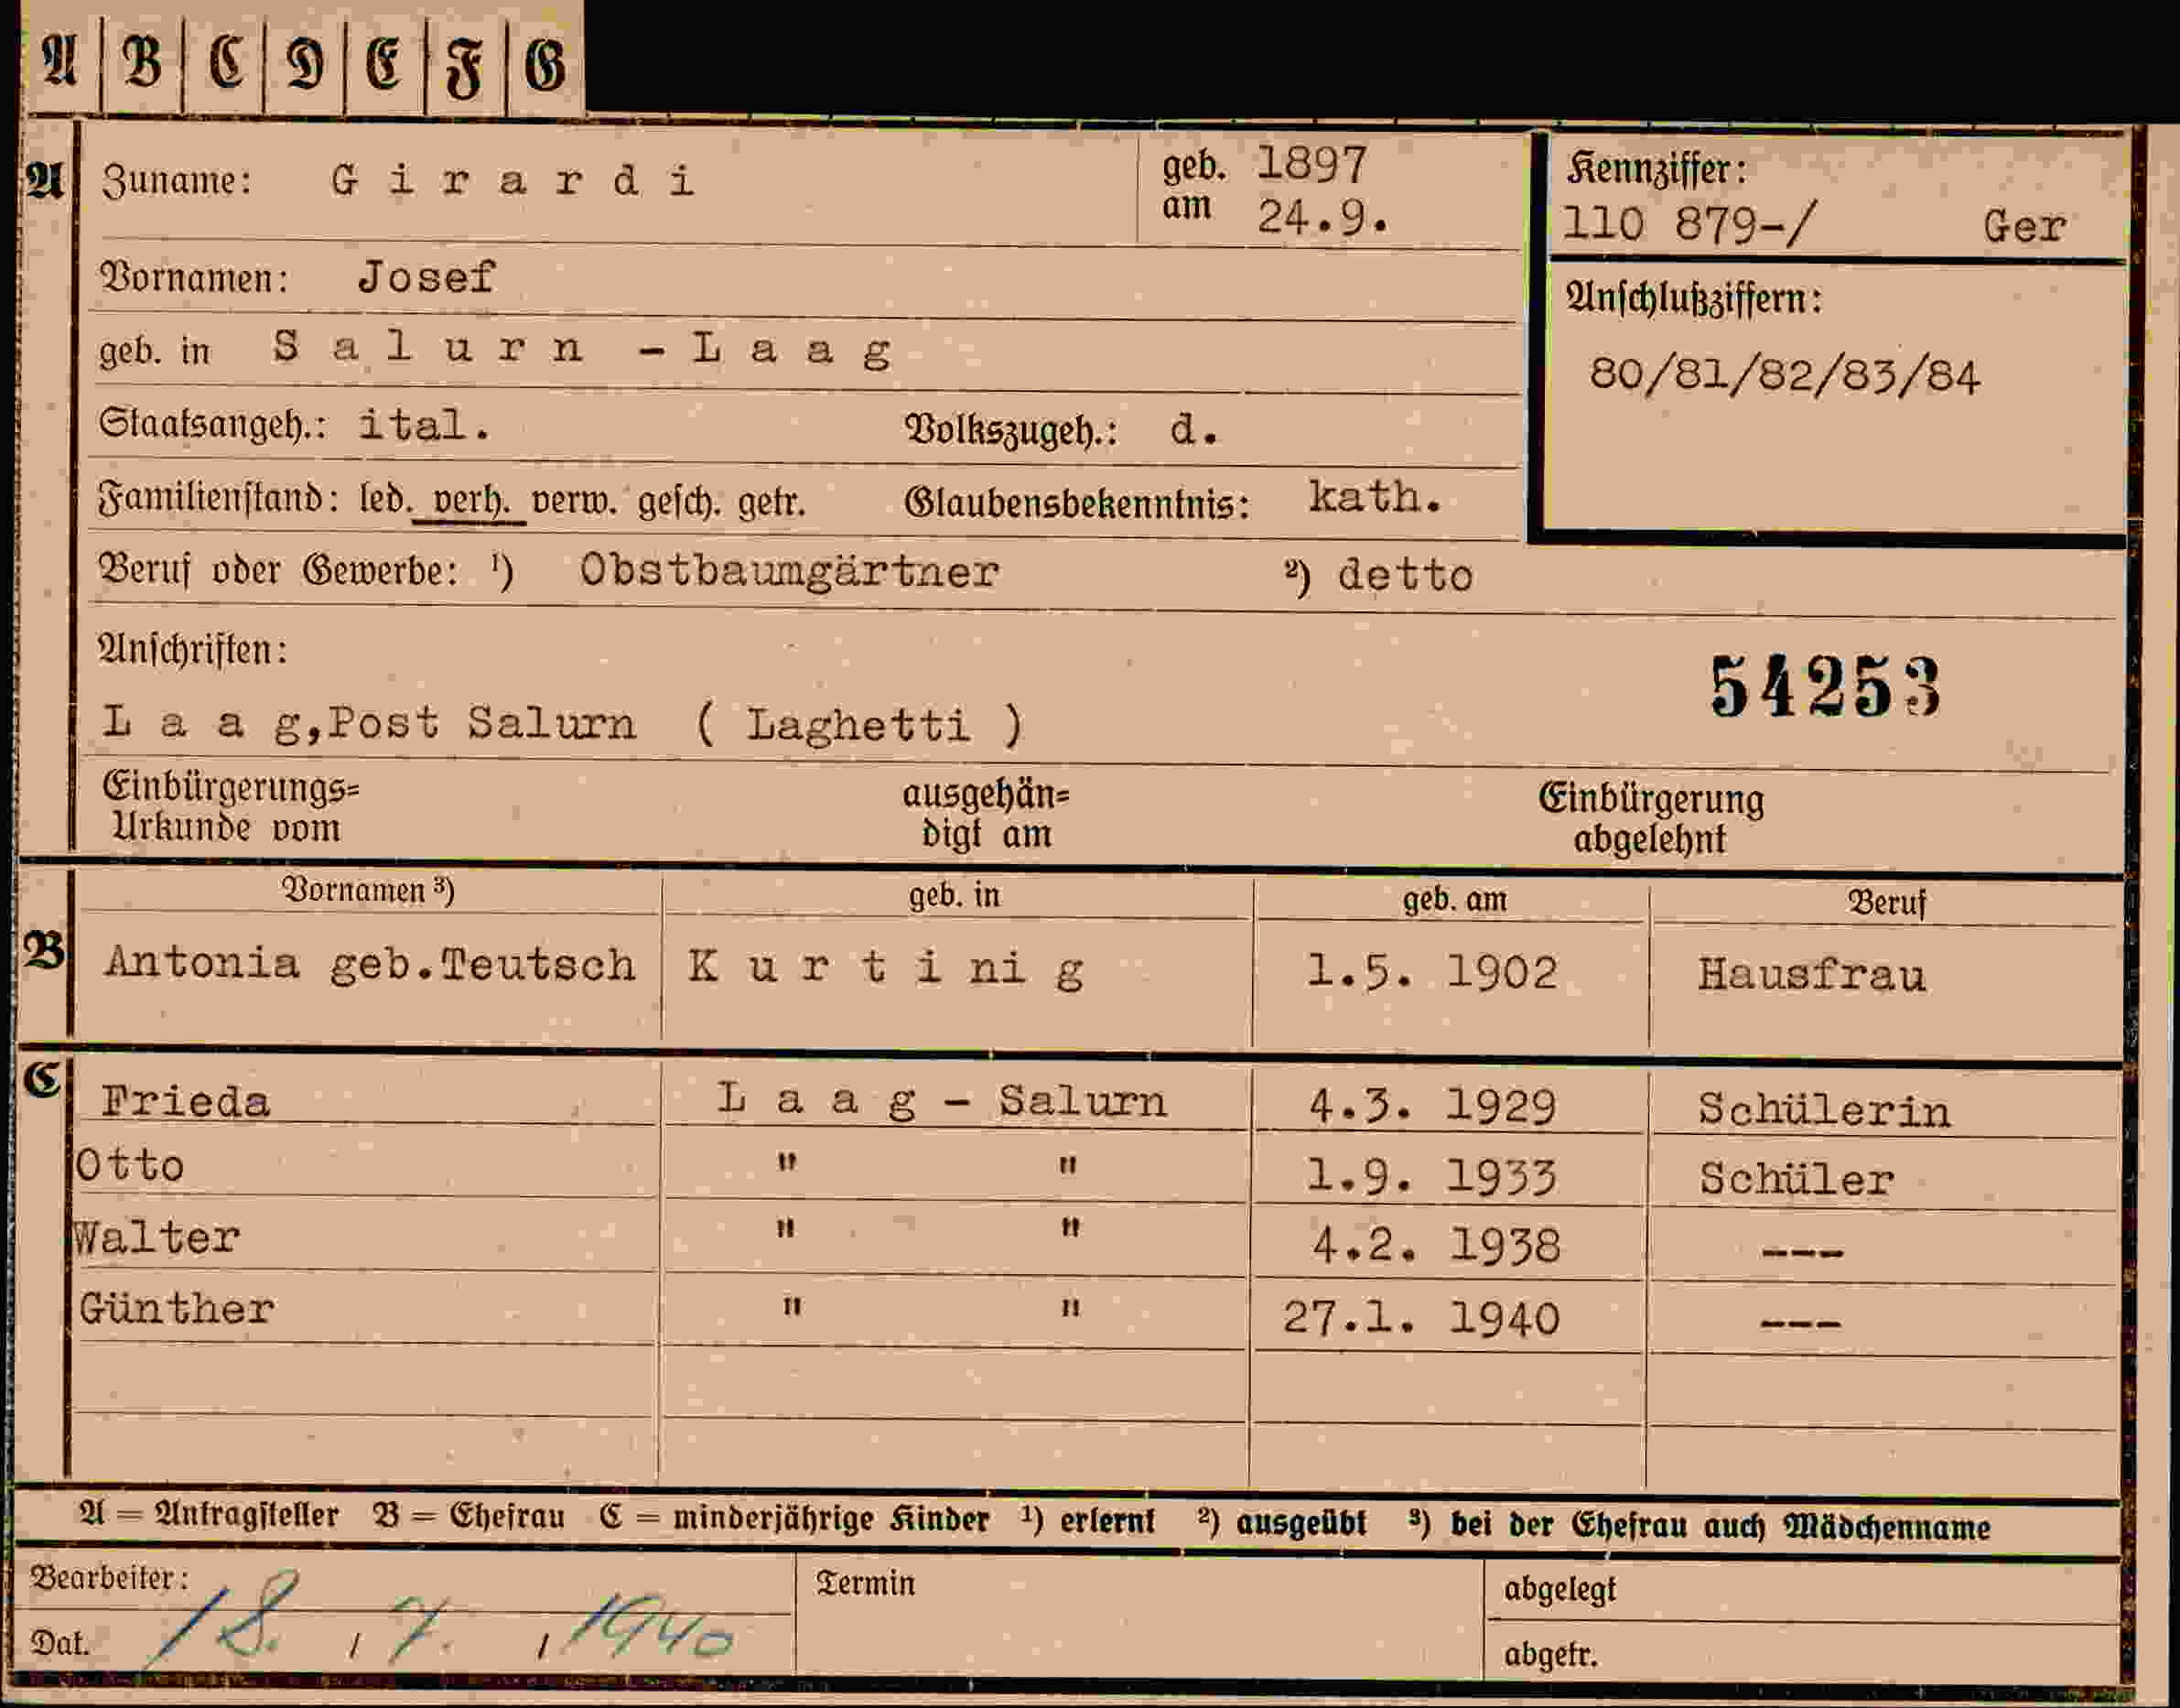 A B C D E F G
A Zuname: G i r a r d i geb. am 1897 24.9.
Kennziffer:
110 879-/ Ger
Vornamen: Josef
Anschlußziffern:
geb. in S a l u r n - L a a g
80/81/82/83/84
Staatsangeh.: ital. Volkszugeh.: d.
Familienstand: led. verh. verw. gesch. getr. Glaubensbekenntnis: kath.
Beruf oder Gewerbe: ¹) Obstbaumgärtner ²) detto
Anschriften:
54253
L a a g,Post Salurn ( Laghetti )
Einbürgerungs= ausgehän= Einbürgerung
Urkunde vom digt am abgelehnt
Vornamen ³) geb. in geb. am Beruf
B Antonia geb.Teutsch K u r t i ni g 1.5. 1902 Hausfrau
C Frieda L a a g - Salurn 4.3. 1929 Schülerin
Otto " " 1.9. 1933 Schüler
Walter " " 4.2. 1938 ---
Günther " " 27.1. 1940 ---
A = Antragsteller B = Ehefrau C = minderjährige Kinder ¹) erlernt ²) ausgeübt ³) bei der Ehefrau auch Mädchenname
Bearbeiter: Termin abgelegt
Dat. 18. / 7. / 1940 abgetr.